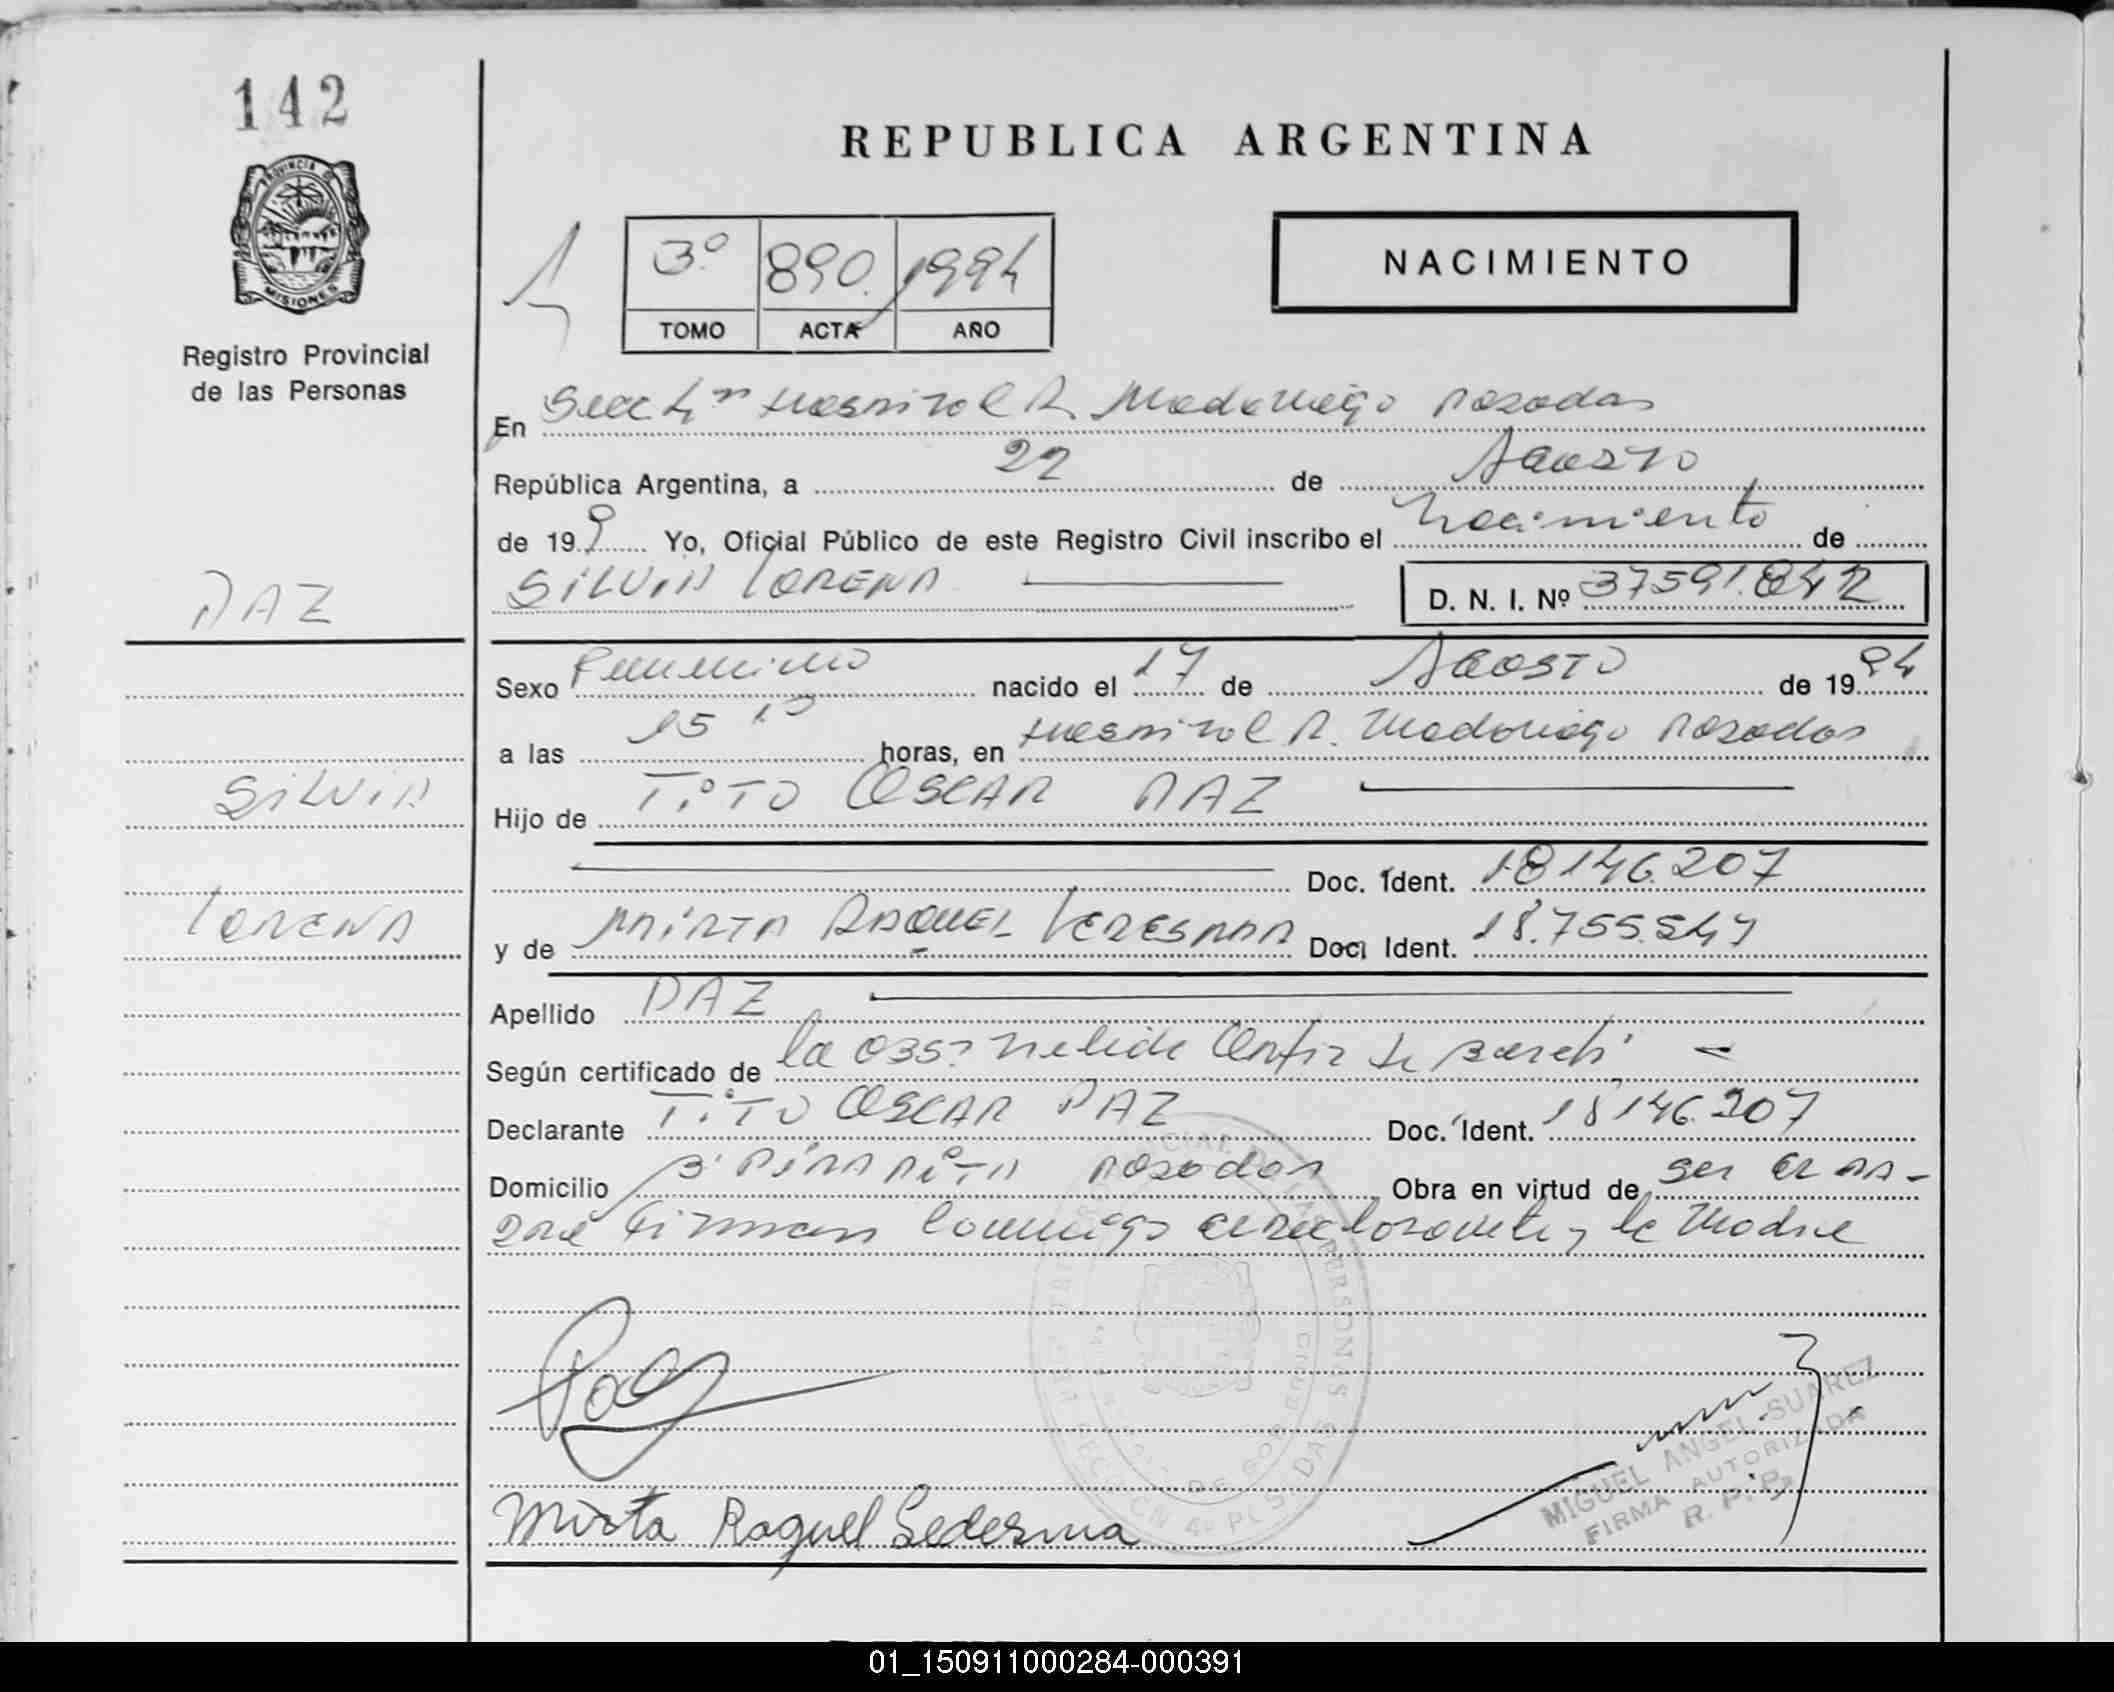 142
PROVINCIA DE
MISIONES
Registro Provincial
de las Personas
REPUBLICA ARGENTINA
3º 890. 1994
TOMO ACTA AÑO
NACIMIENTO
En Secc 4ª Hospital R. Madariaga Posadas
República Argentina, a 22 de Agosto
de 199 Yo, Oficial Público de este Registro Civil inscribo el Nacimiento de
SILVIA LORENA D. N. I. Nº 37591.842
PAZ
Sexo Femenino nacido el 17 de AGOSTO de 1994
a las 15 10 horas, en Hospital R. Madariaga Posadas
SILVIA
Hijo de TITO OSCAR PAZ
Doc. Ident. 18146.207
LORENA
y de MIRTA RAQUEL LEDESMA Doc. Ident. 18.755.547
Apellido PAZ
Según certificado de la Obst Nelida
Declarante TITO OSCAR PAZ Doc. Ident. 18146.207
Domicilio Bº Posadas Obra en virtud de ser el PA-
DRE Firman conmigo el declarante y la Madre
Paz
Mirta Raquel Ledesma
MIGUEL ANGEL SUAREZ
FIRMA AUTORIZADA
R. P. P.
01_150911000284-000391